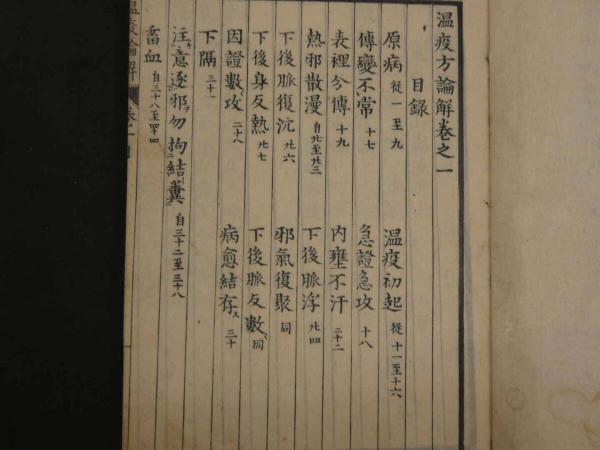 温疫方論解卷之一
目錄
原病 從一至九 温疫初起 從十一至十六
傳變不常 十七 急證急攻 十八
表裡分傳 十九 内壅不汗 二十二
熱邪散漫 自廿至廿三 下後脈浮 廿四
下後脈復沉 廿六 邪氣復聚 同
下後身反熱 廿七 下後脈反數 同
因證數攻 二十八 病愈結存 三十
下隔 三十一
注意逐邪勿拘結糞 自三十二至三十八
畜血 自三十八至四四
温疫論解 卷一 目